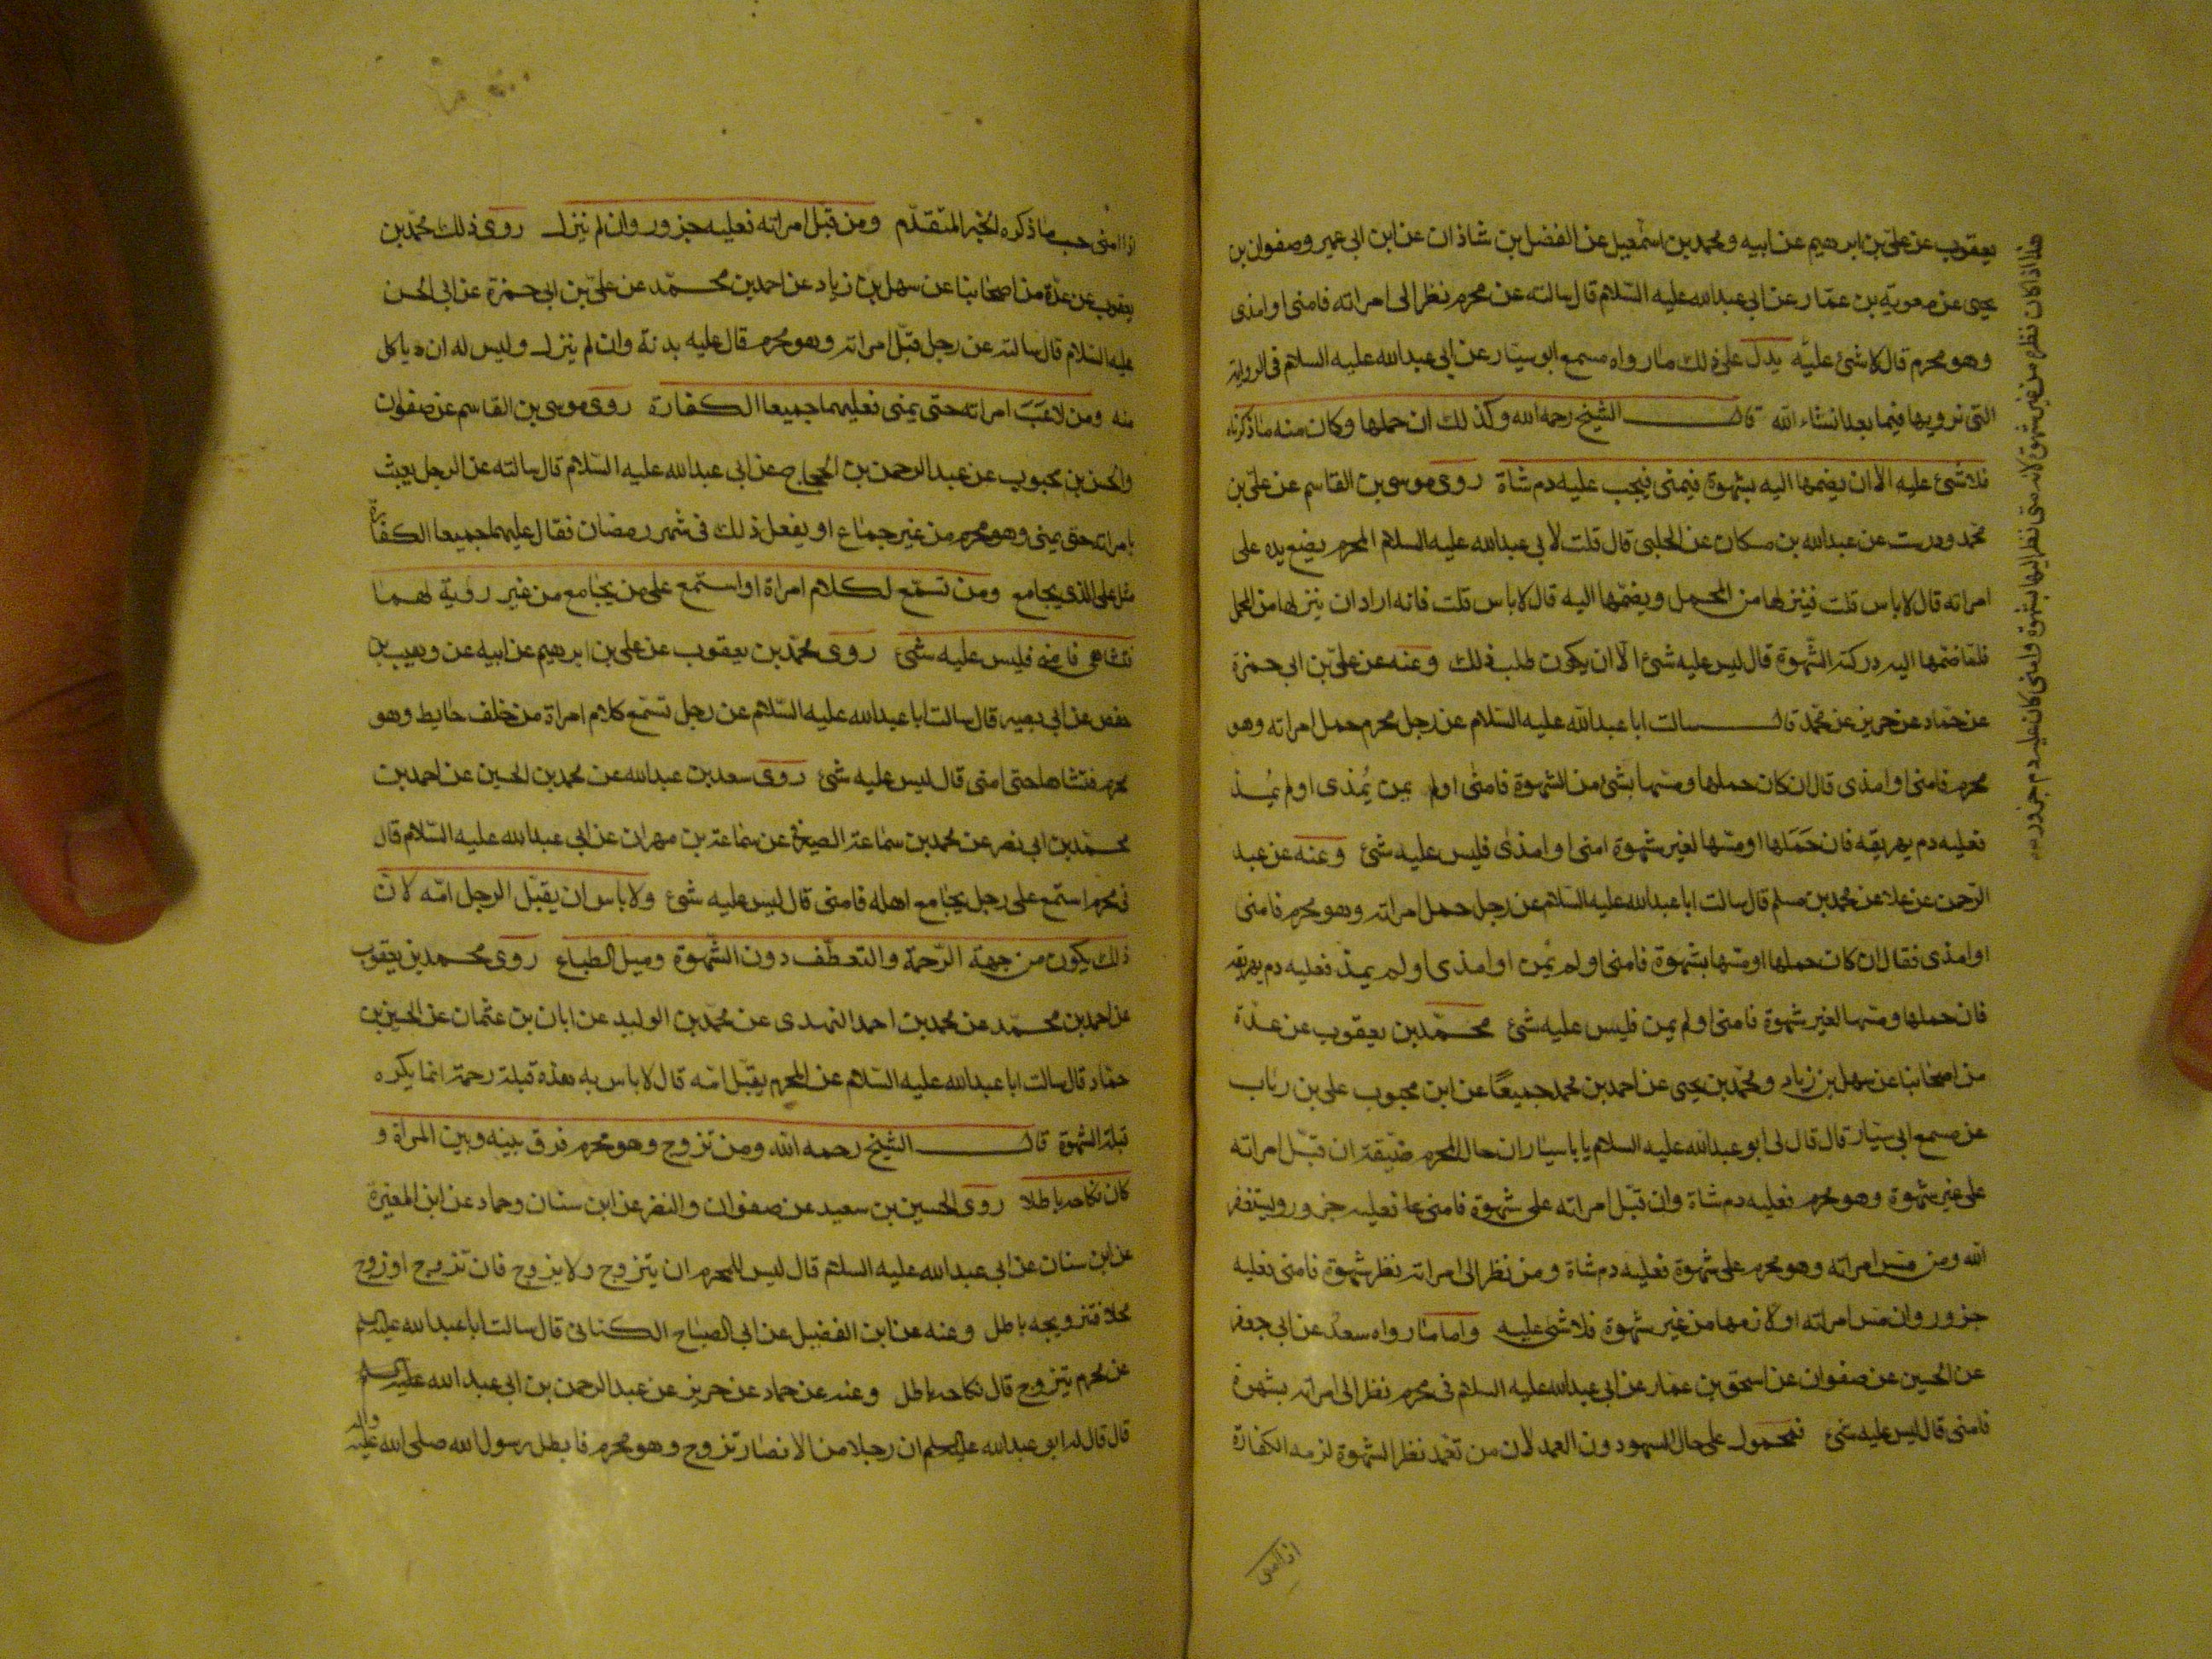 يعقوب عن علي بن ابرهيم عن ابيه ومحمد بن اسمعيل عن الفضل بن شاذان عن ابن ابي عمير وصفوان بن
يحيى عن معوية بن عمّار عن ابي عبدالله عليه السّلام قال سالته عن محرم نظر الى امراته فامنى او امذى
وهو محرم قال لا شئ عليه يدل على ذلك ما رواه مسمع ابو سيّار عن ابي عبدالله عليه السلام في الرواية
التي نرويها فيما بعد انشاء الله قال الشيخ رحمه الله وكذلك ان حملها وكان منه ما ذكرناه
فلا شئ عليه الا ان يضمها اليه بشهوة فيمني فيجب عليه دم شاة روى موسى بن القاسم عن علي بن
محمد ودرست عن عبدالله بن مسكان عن الحلبي قال قلت لابي عبدالله عليه السلام المحرم يضع يده على
امراته قال لا باس قلت فينزلها من المحمل ويضمّها اليه قال لا باس قلت فانه اراد ان ينزلها من المحمل
فلما ضمها اليه ادركته الشّهوة قال ليس عليه شئ الا ان يكون طلب ذلك وعنه عن علي بن ابي حمزة
عن حمّاد عن حريز عن محمّد قال سالت ابا عبدالله عليه السّلام عن رجل محرم حمل امراته وهو
محرم فامنى او امذى قال ان كان حملها ومسها بشئ من الشهوة فامنى اولم يمن يُمذى اولم يُمذ
فعليه دم يهريقه فان حَمَلها او مسها لغير شهوة امنى او امذى فليس عليه شئ وعنه عن عبد
الرّحمن عن علا عن محمد بن مسلم قال سالت ابا عبدالله عليه السّلام عن رجل حمل امراته وهو محرم فامنى
او امذى فقال ان كان حملها او مسها بشهوة فامنى او لم يُمن او امذى او لم يمذ فعليه دم يهريقه
فان حملها ومسها لغير شهوة فامنى او لم يمن فليس عليه شئ محمّد بن يعقوب عن عدّة
من اصحابنا عن سهل بن زياد ومحمّد بن يحيى عن احمد بن محمد جميعًا عن ابن محبوب علي بن رباب
عن مسمع ابي سيّار قال قال لي ابو عبدالله عليه السلام يا باسيّار ان حال المحرم ضيّقة ان قبّل امراته
على غير شهوة وهو محرم فعليه دم شاة وان قبّل امراته على شهوة فامنى فعليه جزور ويستغفر
الله ومن مس امراته وهو محرم على شهوة فعليه دم شاة ومن نظر الى امراته نظر شهوة فامنى فعليه
جزور وان مس امراته او لازمها من غير شهوة فلا شئ عليه واما ما رواه سعد عن ابي جعفر
عن الحسين عن صفوان عن اسحق بن عمّار عن ابي عبدالله عليه السلام في محرم نظر الى امراته بشهوة
فامنى قال ليس عليه شئ فمحمول على حال السهو دون العمد لان من تعمد نظر الشهوة لزمه الكفارة
هذا اذا كان نظره من غير شهوة لانه متى نظر اليها بشهوة وامنى كان عليه دم جزور
اذا امنى
اذا امنى حسب ما ذكره الخبر المتقدّم ومن قبّل امراته فعليه جزور وان لم ينزل روى ذلك محمّد بن
يعقوب عن عدّة من اصحابنا عن سهل بن زياد عن احمد بن محمّد عن علي بن ابي حمزة عن ابي الحسن
عليه السّلام قال سالته عن رجل قبّل امراته وهو محرم قال عليه بدنة وان لم ينزل وليس له ان ياكل
منه ومن لاعَبَ امراته حتى يمنى فعليهما جميعا الكفارة روى موسى بن القاسم عن صفوان
والحسن بن محبوب عن عبد الرحمن بن الحجاج عن ابي عبدالله عليه السّلام قال سالته عن الرجل يعبث
بامراته حتى يمنى وهو محرم من غير جماع او يفعل ذلك في شهر رمضان فقال عليهما جميعا الكفارة
مثل على الذي يجامع ومن تسمّع لكلام امراة او استمع على من يجامع من غير رؤية لهما
فتشاهى فامنى فليس عليه شئ روى محمّد بن يعقوب عن علي بن ابرهيم عن ابيه عن وهيب بن
حفص عن ابي بصير قال سالت ابا عبدالله عليه السّلام عن رجل تسمّع كلام امراة من خلف حايط وهو
محرم فتشاها حتى امنى قال ليس عليه شئ روى سعد بن عبدالله عن محمد بن الحسين عن احمد بن
محمّد بن ابي نصر عن محمد بن سماعة الصيرفي عن سماعة بن مهران عن ابي عبدالله عليه السّلام قال
في محرم استمع على رجل يجامع اهله فامنى قال ليس عليه شئ ولا باس ان يقبّل الرجل امّه لان
ذلك يكون من جهة الرّحمة والتعطّف دون الشّهوة وميل الطباع روى محمد بن يعقوب
عن احمد بن محمّد عن محمد بن احمد النهدى عن محمّد بن الوليد عن ابان بن عثمان عن الحسين بن
حمّاد قال سالت ابا عبدالله عليه السّلام عن المحرم يقبّل امّه قال لا باس به هذه قبلة رحمة انما يكره
قبلة الشهوة قال الشيخ رحمه الله ومن تزوج وهو محرم فرق بينه وبين المراة و
كان نكاحه باطلا روى الحسين بن سعيد عن صفوان والنضر عن ابن سنان وحماد عن ابن المغيرة
عن ابن سنان عن ابي عبدالله عليه السلام قال ليس للمحرم ان يتزوج ولا يزوج فان تزوج او زوج
محلا فتزويجه باطل وعنه عن ابن الفضيل عن ابي الصباح الكناني قال سالت ابا عبدالله عليه السلم
عن محرم يتزوج قال نكاحه باطل وعنه عن حماد عن حريز عن عبد الرحمن بن ابي عبدالله عليه السلم
قال قال له ابو عبدالله عليه السلم ان رجلا من الانصار تزوج وهو محرم فابطل رسول الله صلى الله عليه واله